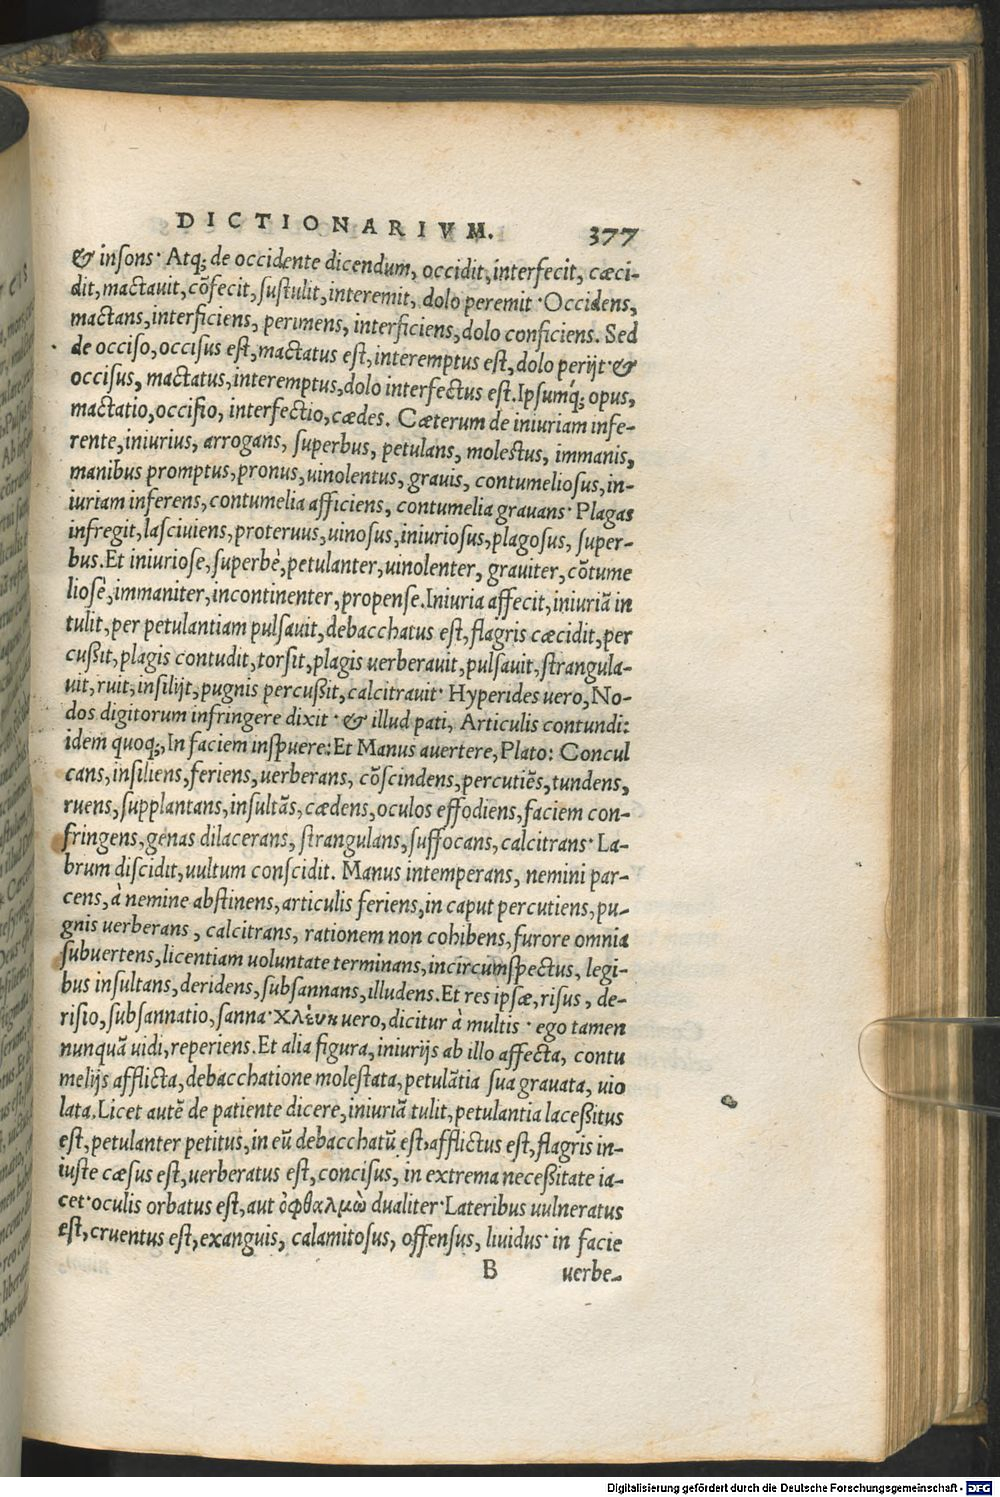 DICTIONARIVM. 377
& insons· Atq; de occidente dicendum, occidit, interfecit, cæci-
dit, mactauit, cõfecit, sustulit, interemit, dolo peremit· Occidens,
mactans, interficiens, perimens, interficiens, dolo conficiens. Sed
de occiso, occisus est, mactatus est, interemptus est, dolo perijt· &
occisus, mactatus, interemptus, dolo interfectus est. Ipsumq́; opus,
mactatio, occisio, interfectio, cædes. Cæterum de iniuriam infe-
rente, iniurius, arrogans, superbus, petulans, molestus, immanis,
manibus promptus, pronus, uinolentus, grauis, contumeliosus, in-
iuriam inferens, contumelia afficiens, contumelia grauans· Plagas
infregit, lasciuiens, proteruus, uinosus, iniuriosus, plagosus, super-
bus. Et iniuriose, superbè, petulanter, uinolenter, grauiter, cõtume
liosè, immaniter, incontinenter, propense. Iniuria affecit, iniuriã in
tulit, per petulantiam pulsauit, debacchatus est, flagris cæcidit, per
cußit, plagis contudit, torsit, plagis uerberauit, pulsauit, strangula-
uit, ruit, insilijt, pugnis percußit, calcitrauit· Hyperides uero, No-
dos digitorum infringere dixit· & illud pati, Articulis contundi:
idem quoq;, In faciem inspuere: Et Manus auertere, Plato: Concul
cans, insiliens, feriens, uerberans, cõscindens, percutiẽs, tundens,
ruens, supplantans, insultãs, cædens, oculos effodiens, faciem con-
fringens, genas dilacerans, strangulans, suffocans, calcitrans· La-
brum discidit, uultum conscidit. Manus intemperans, nemini par-
cens, à nemine abstinens, articulis feriens, in caput percutiens, pu-
gnis uerberans, calcitrans, rationem non cohibens, furore omnia
subuertens, licentiam uoluntate terminans, incircumspectus, legi-
bus insultans, deridens, subsannans, illudens. Et res ipsæ, risus, de-
risio, subsannatio, sanna· χλέυη uero, dicitur à multis· ego tamen
nunquã uidi, reperiens. Et alia figura, iniurijs ab illo affecta, contu
melijs afflicta, debacchatione molestata, petulãtia sua grauata, uio
lata. Licet autẽ de patiente dicere, iniuriã tulit, petulantia laceßitus
est, petulanter petitus, in eũ debacchatũ est, afflictus est, flagris in-
iuste cæsus est, uerberatus est, concisus, in extrema neceßitate ia-
cet· oculis orbatus est, aut ὀφθαλμὼ dualiter· Lateribus uulneratus
est, cruentus est, exanguis, calamitosus, offensus, liuidus· in facie
B uerbe-
Digitalisierung gefördert durch die Deutsche Forschungsgemeinschaft - DFG